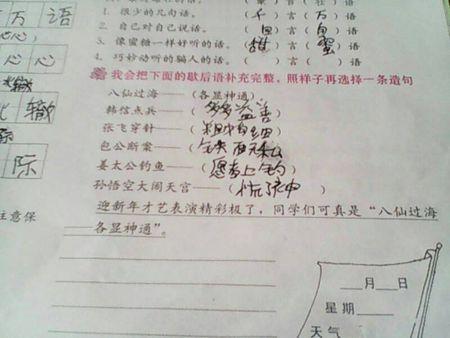 万 语
1. 很少的几句话。 (千)言(万)语
2. 自己对自己说话。 (自)言(自)语
3. 像蜜糖一样好听的话。 (甜)言(蜜)语
4. 巧妙动听的骗人的话。 ( )言( )语
心 心
辙
际
我会把下面的歇后语补充完整,照样子再选择一条造句
八仙过海——(各显神通)
韩信点兵——(多多益善)
张飞穿针——(粗中有细)
包公断案——(铁面无私)
姜太公钓鱼——(愿者上钩)
孙悟空大闹天宫——(慌了天中)
迎新年才艺表演精彩极了,同学们可真是“八仙过海
——各显神通”。
注意保
月 日
星期
天气